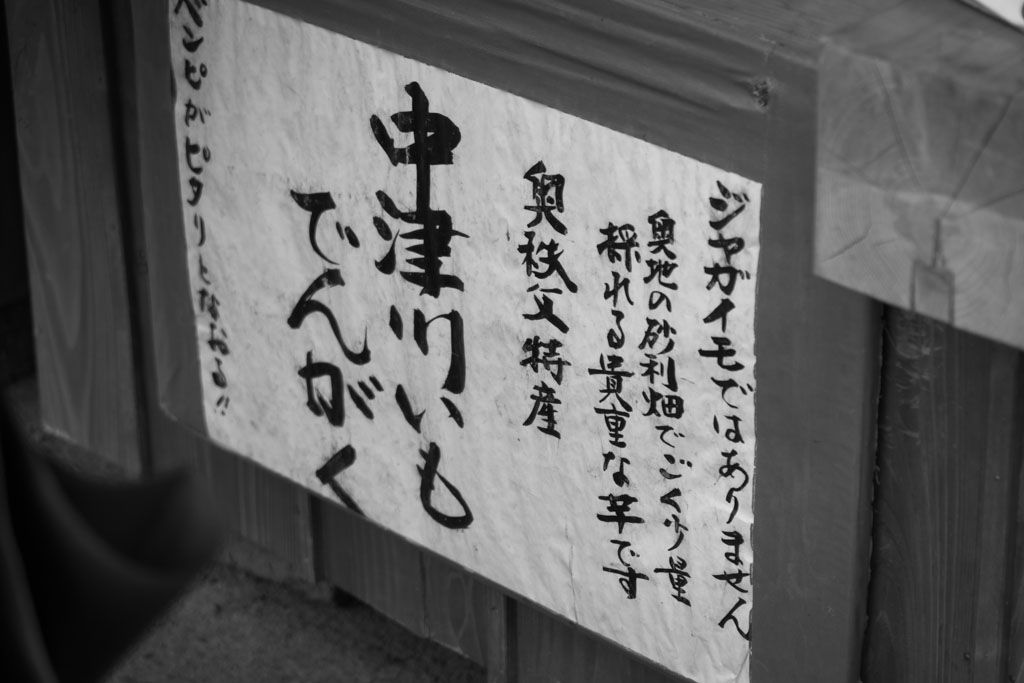 ジャガイモではありません
奥地の砂利畑でごく少量
採れる貴重な芋です
奥秩父特産
中津川いも
でんがく
ベンピがピタリとなおる!!